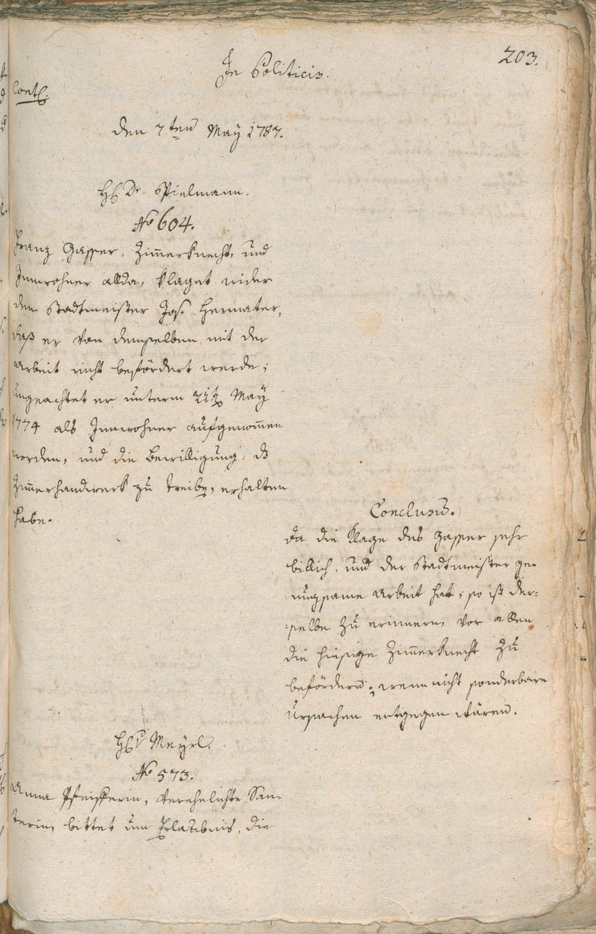 203.
In Politicis.
Cont.
den 7ten May 1787.
H. Dr. Spielmann.
No 604.
Franz Gasser, Zimmerknecht, und
Innwohner allda, klaget wider
den Stadtmeister Jos. Hermater,
daß er von demselben mit der
Arbeit nicht befördert werde;
ungeachtet er unterm May
1774 als Innwohner aufgenommen
worden, und die Bewilligung, ds
Zimmerhandwerk zu treiben, erhalten
habe.
Conclusum.
da die Klage des Gasser sehr
billich, und der Stadtmeister ge-
nugsame Arbeit hat; so ist der-
selbe zu erinnern, vor allen
die hiesige Zimmerknecht zu
befördern, wenn nicht sonderbare
Ursachen entgegen wären.
H. Meyrl.
No 573.
Anna Pfeifferin, verehelichte San-
terin, bittet um Erlaubnis, die